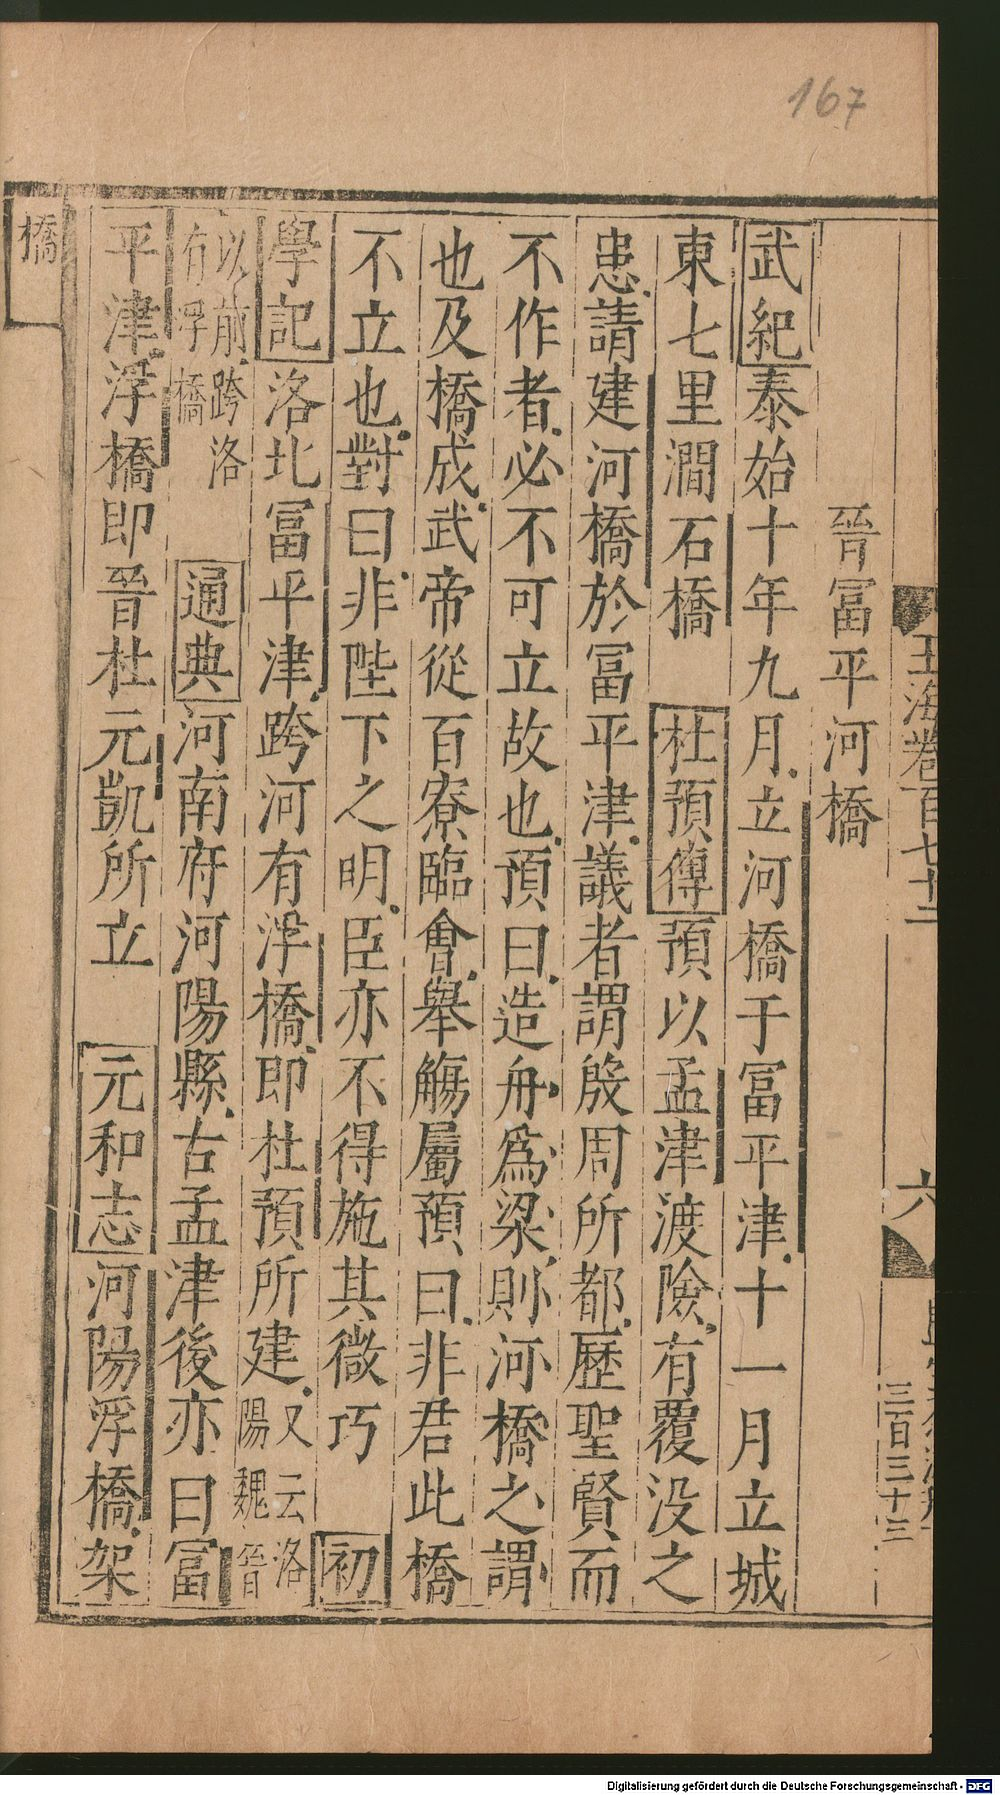 167
玉海卷百七十二
六
三百三十三
晉冨平河橋
武紀泰始十年九月立河橋于冨平津十一月立城
東七里澗石橋 杜預傳預以孟津渡險有覆没之
患請建河橋於冨平津議者謂殷周所都歷聖賢而
不作者必不可立故也預曰造舟爲梁則河橋之謂
也及橋成武帝從百寮臨會舉觴屬預曰非君此橋
不立也對曰非陛下之明臣亦不得施其微巧 初
學記洛北冨平津跨河有浮橋即杜預所建又云洛陽魏晉
以前跨洛有浮橋 通典河南府河陽縣古孟津後亦曰冨
平津浮橋即晉杜元凱所立 元和志河陽浮橋架
橋
Digitalisierung gefördert durch die Deutsche Forschungsgemeinschaft - DFG